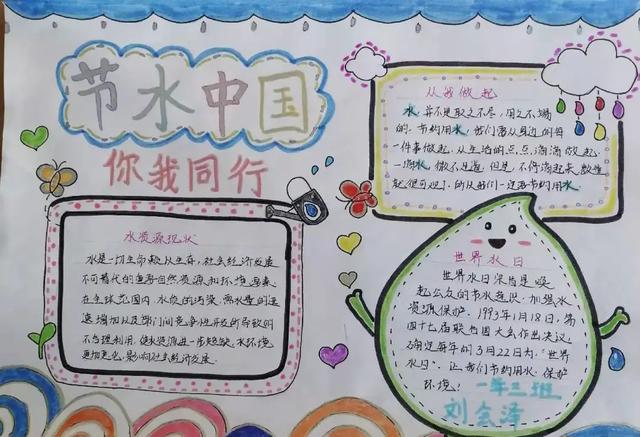 节水中国
你我同行
水资源现状
水是一切生命赖以生存，社会经济发展
不可替代的重要自然资源和环境要素
在全球范围内，水质的污染，需水量的迅
速增加以及部门间竞争性开发所导致的
不合理利用，使水资源进一步短缺，水环境
更加恶化，影响社会经济发展
从我做起
水，并不是取之不尽，用之不竭
的。节约用水，我们要从身边的每
一件事做起，从生活的点点滴滴做起。
一滴水，微不足道，但是，不停滴起来，数量
起很可观了，所以我们一定要节约用水
世界水日
世界水日宗旨是唤
起公众的节水意识，加强水
资源保护。1993年1月18日，第
四十七届联合国大会作出决议，
确定每年的3月22日为：“世界
水日”，让我们节约用水，保护
环境！
一年三班
刘会泽